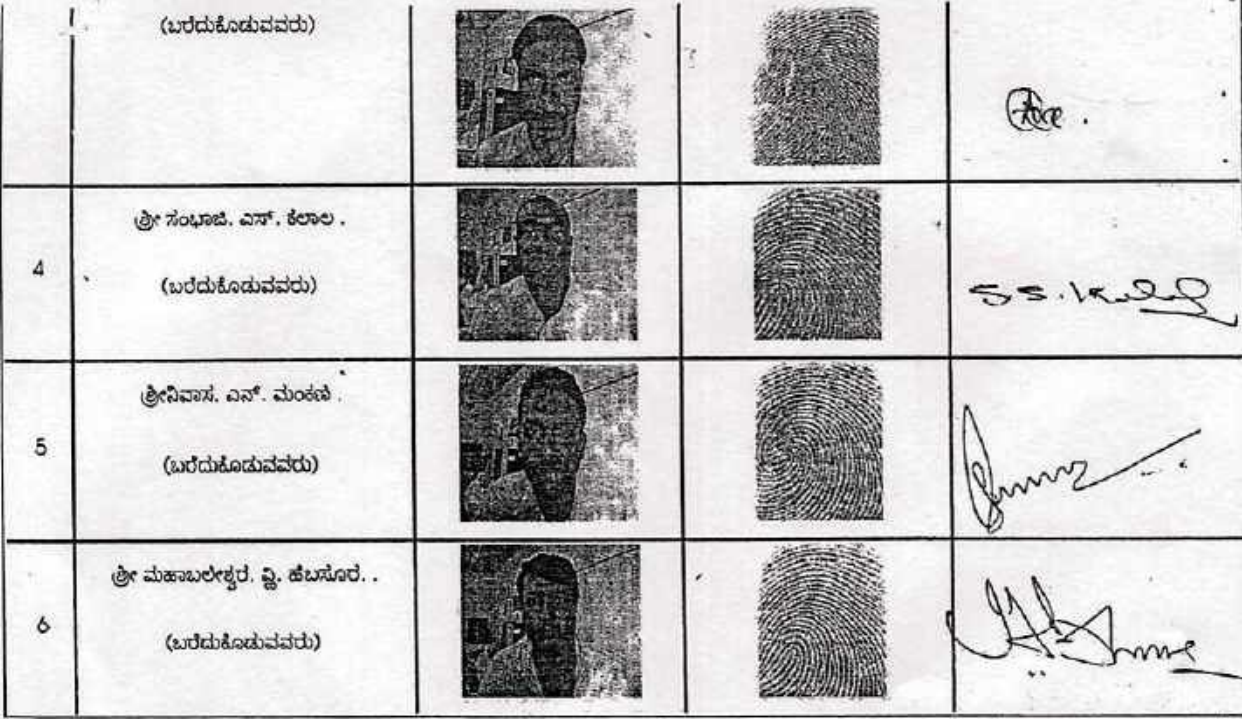 (ಬರೆದುಕೊಡುವವರು)
ಶ್ರೀ ಸಂಭಾಜಿ. ಎಸ್. ಕಲಾಲ .
4
(ಬರೆದುಕೊಡುವವರು)
S S. Kalal
ಶ್ರೀನಿವಾಸ. ಎನ್. ಮಂಕಣಿ .
5
(ಬರೆದುಕೊಡುವವರು)
ಶ್ರೀ ಮಹಾಬಲೇಶ್ವರ. ವ್ಹಿ. ಹೆಬಸೂರ. .
6
(ಬರೆದುಕೊಡುವವರು)